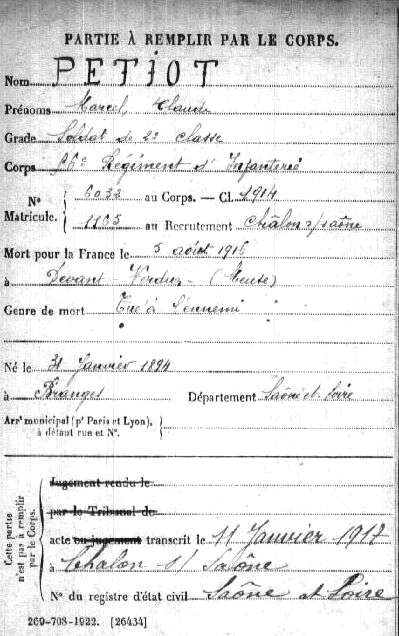 PARTIE À REMPLIR PAR LE CORPS.
Nom PETIOT
Prénoms Marcel, Claude
Grade Soldat de 2e classe
Corps 56e Régiment d'Infanterie
N° Matricule. { 6032 au Corps. — Cl. 1914
1165 au Recrutement Châlon s/saône
Mort pour la France le 5 août 1916
à Devant - Verdun - (Meuse)
Genre de mort Tué à l'ennemi
Né le 31 Janvier 1894
à Branges Département Saône et Loire
Arrt municipal (pr Paris et Lyon),
à défaut rue et N°.
Cette partie
n'est pas à remplir
par le Corps.
Jugement rendu le
par le Tribunal de
acte ou jugement transcrit le 11 Janvier 1917
à Chalon s/ Saône
N° du registre d'état civil Saône et Loire
269-708-1922. [26434]